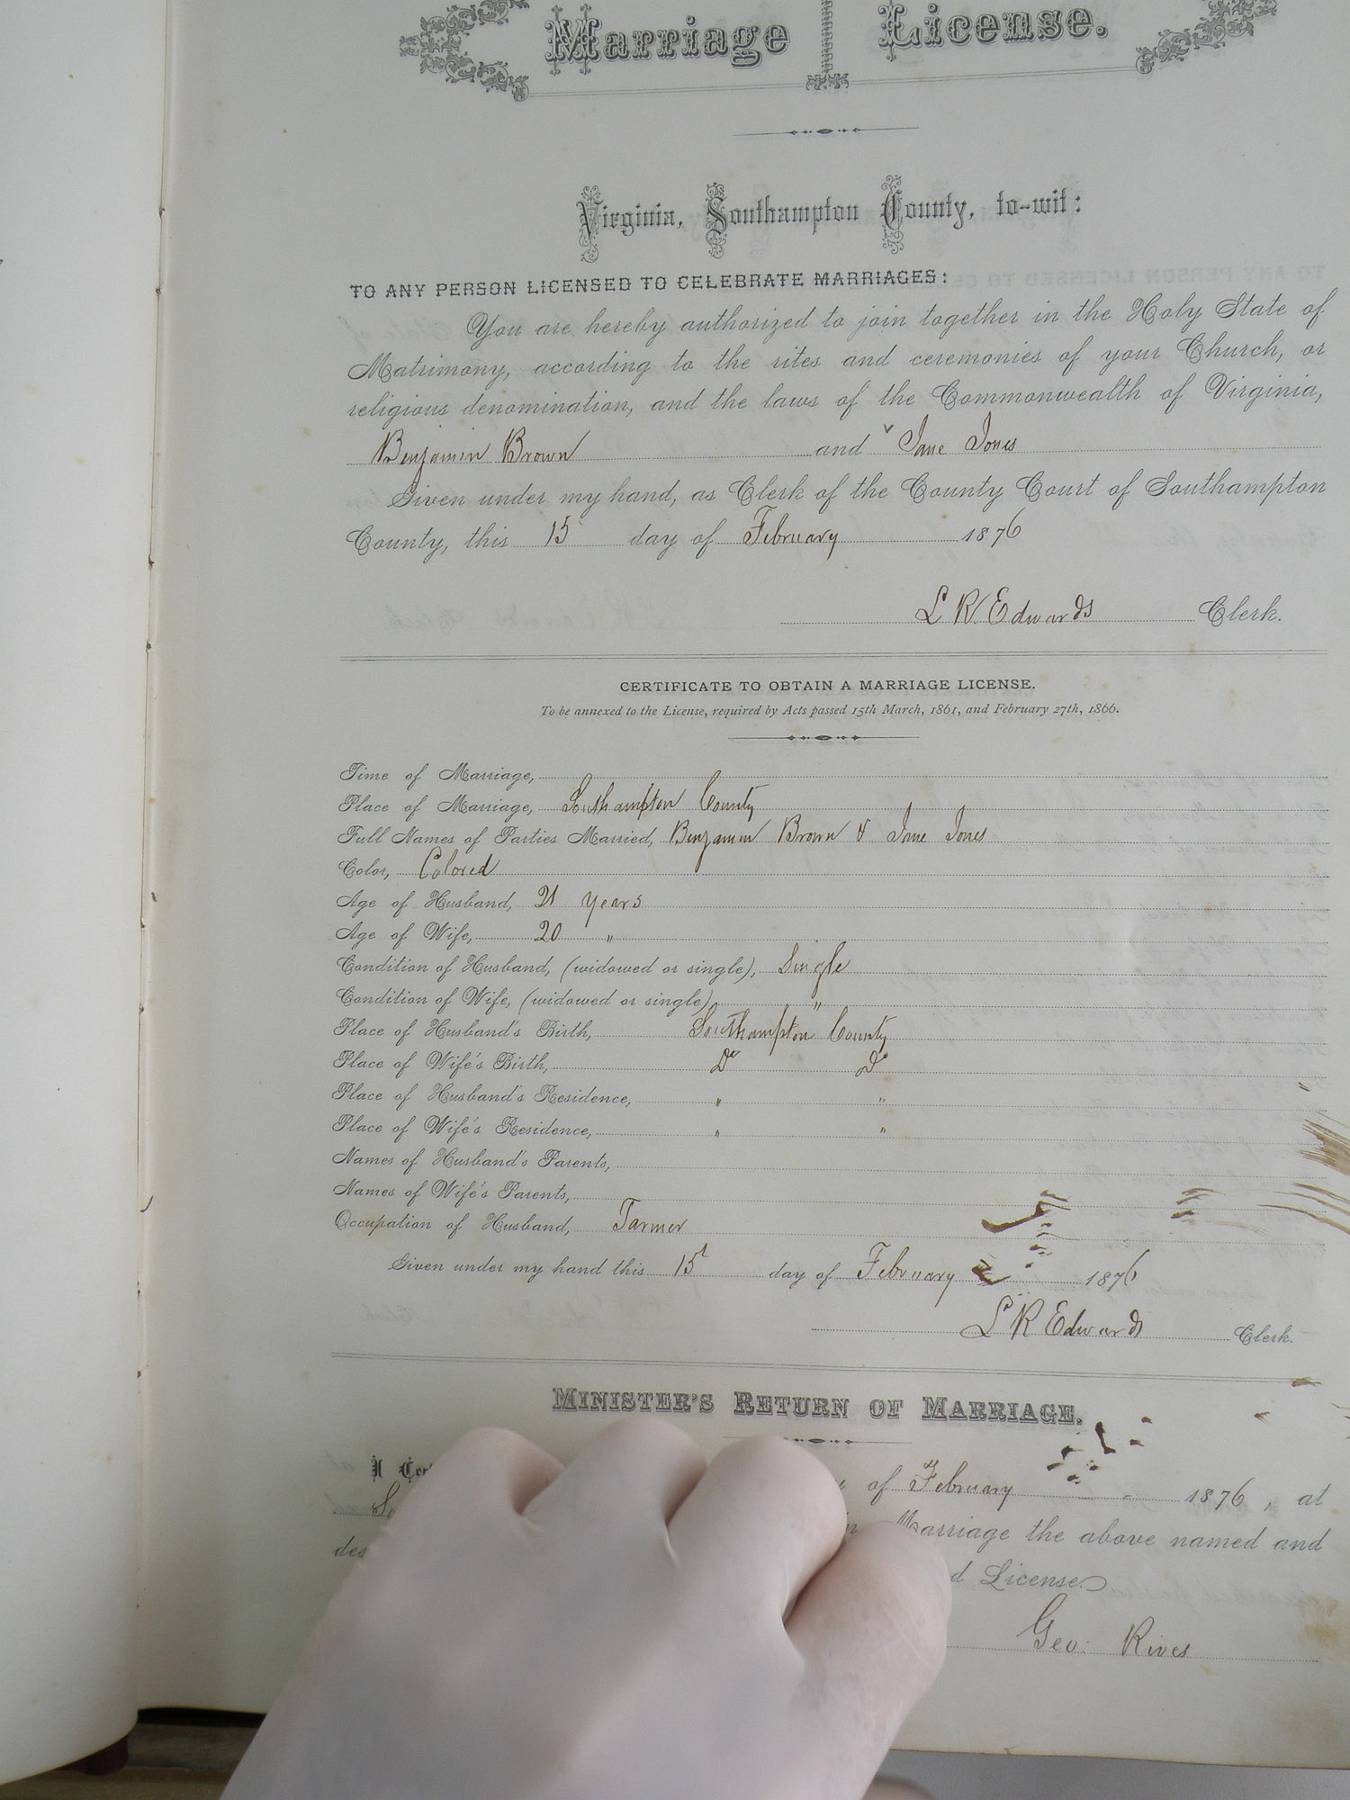 Marriage License.
Virginia, Southampton County, to-wit:
TO ANY PERSON LICENSED TO CELEBRATE MARRIAGES:
You are hereby authorized to join together in the Holy State of
Matrimony, according to the rites and ceremonies of your Church, or
religious denomination, and the laws of the Commonwealth of Virginia,
Benjamin Brown and Jane Jones
Given under my hand, as Clerk of the County Court of Southampton
County, this 15 day of February 1876
L R Edwards Clerk.
CERTIFICATE TO OBTAIN A MARRIAGE LICENSE.
To be annexed to the License, required by Acts passed 15th March, 1861, and February 27th, 1866.
Time of Marriage,
Place of Marriage, Southampton County
Full Names of Parties Married, Benjamin Brown & Jane Jones
Color, Colored
Age of Husband, 21 years
Age of Wife, 20 "
Condition of Husband, (widowed or single), Single
Condition of Wife, (widowed or single), "
Place of Husband's Birth, Southampton County
Place of Wife's Birth, Do Do
Place of Husband's Residence, " "
Place of Wife's Residence, " "
Names of Husband's Parents,
Names of Wife's Parents,
Occupation of Husband, Farmer
Given under my hand this 15 day of February 1876
L R Edwards Clerk.
MINISTER'S RETURN OF MARRIAGE.
I of February 1876, at
Marriage the above named and
License.
Geo: Rives